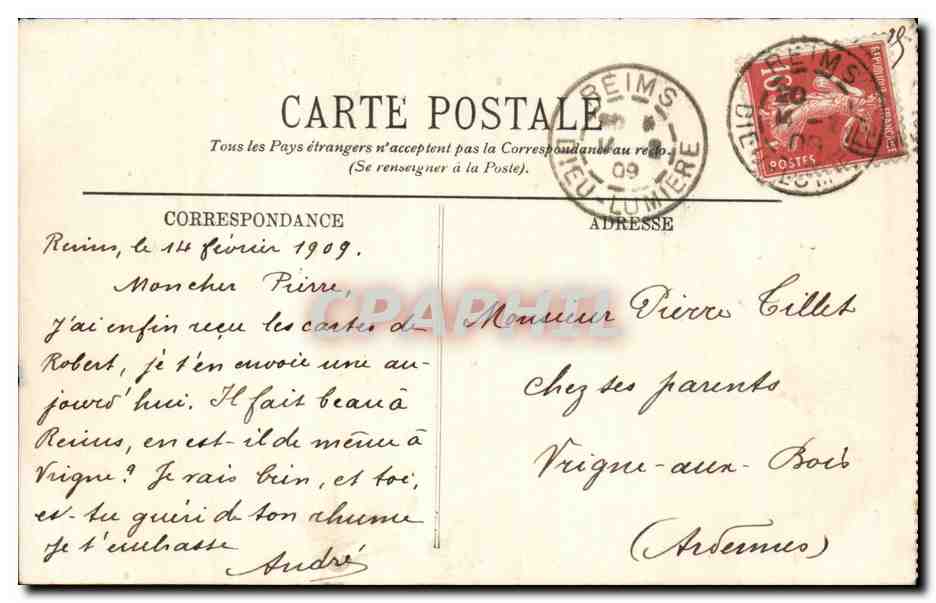 CARTE POSTALE
Tous les Pays étrangers n'acceptent pas la Correspondance au recto.
(Se renseigner à la Poste).
REIMS
09
DIEU-LUMIÈRE
REIMS
09
DIEU LUM
REPUBLIQUE FRANÇAISE
10
POSTES
CORRESPONDANCE
Reims, le 14 février 1909.
Moncher Pierre,
J'ai enfin reçu les cartes de
Robert, je t'en envoie une au-
jourd'hui. Il fait beau à
Reims, en est-il de même à
Vrigne? Je vais bien, et toi,
es-tu guéri de ton rhume
Je t'embrasse
André
ADRESSE
Monsieur Pierre Tillet
chez ses parents
Vrigne-aux-Bois
(Ardennes)
CPAPHIL